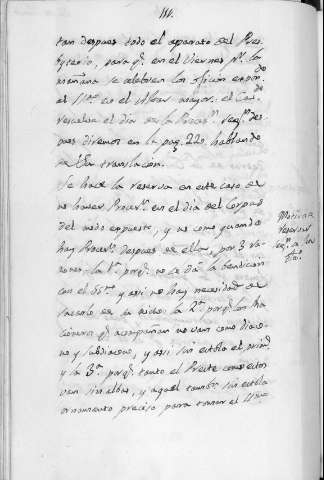 111.
tan despues todo el aparato del Pres-
byterio, para q.e en el Viernes p.r la
mañana se celebren los oficios
el S.mo en el Altar mayor. el
el dia de la Proces.n seg.n des-
pues diremos en la pag. 220. hablando
de translacion.
Se hace la reserva en este caso de
no haver Proces.n en el dia del Corpus
del modo expuesto, y no como quando
hay Proces.n despues de ella, por 3 ra-
zones. la 1.a porq.e no se dá la bendicion
con el SS.mo y asi no hay necesidad de
sacarlo de la 2.a porq.e los
q.e acompañan no van como Diaco-
no y Subdiacono, y asi sin estola el
y la 3.a porq.e tanto el Preste como estos
van sin albas, y aquel tambn. sin estola
ornamento preciso para tomar el SS.mo
reservar